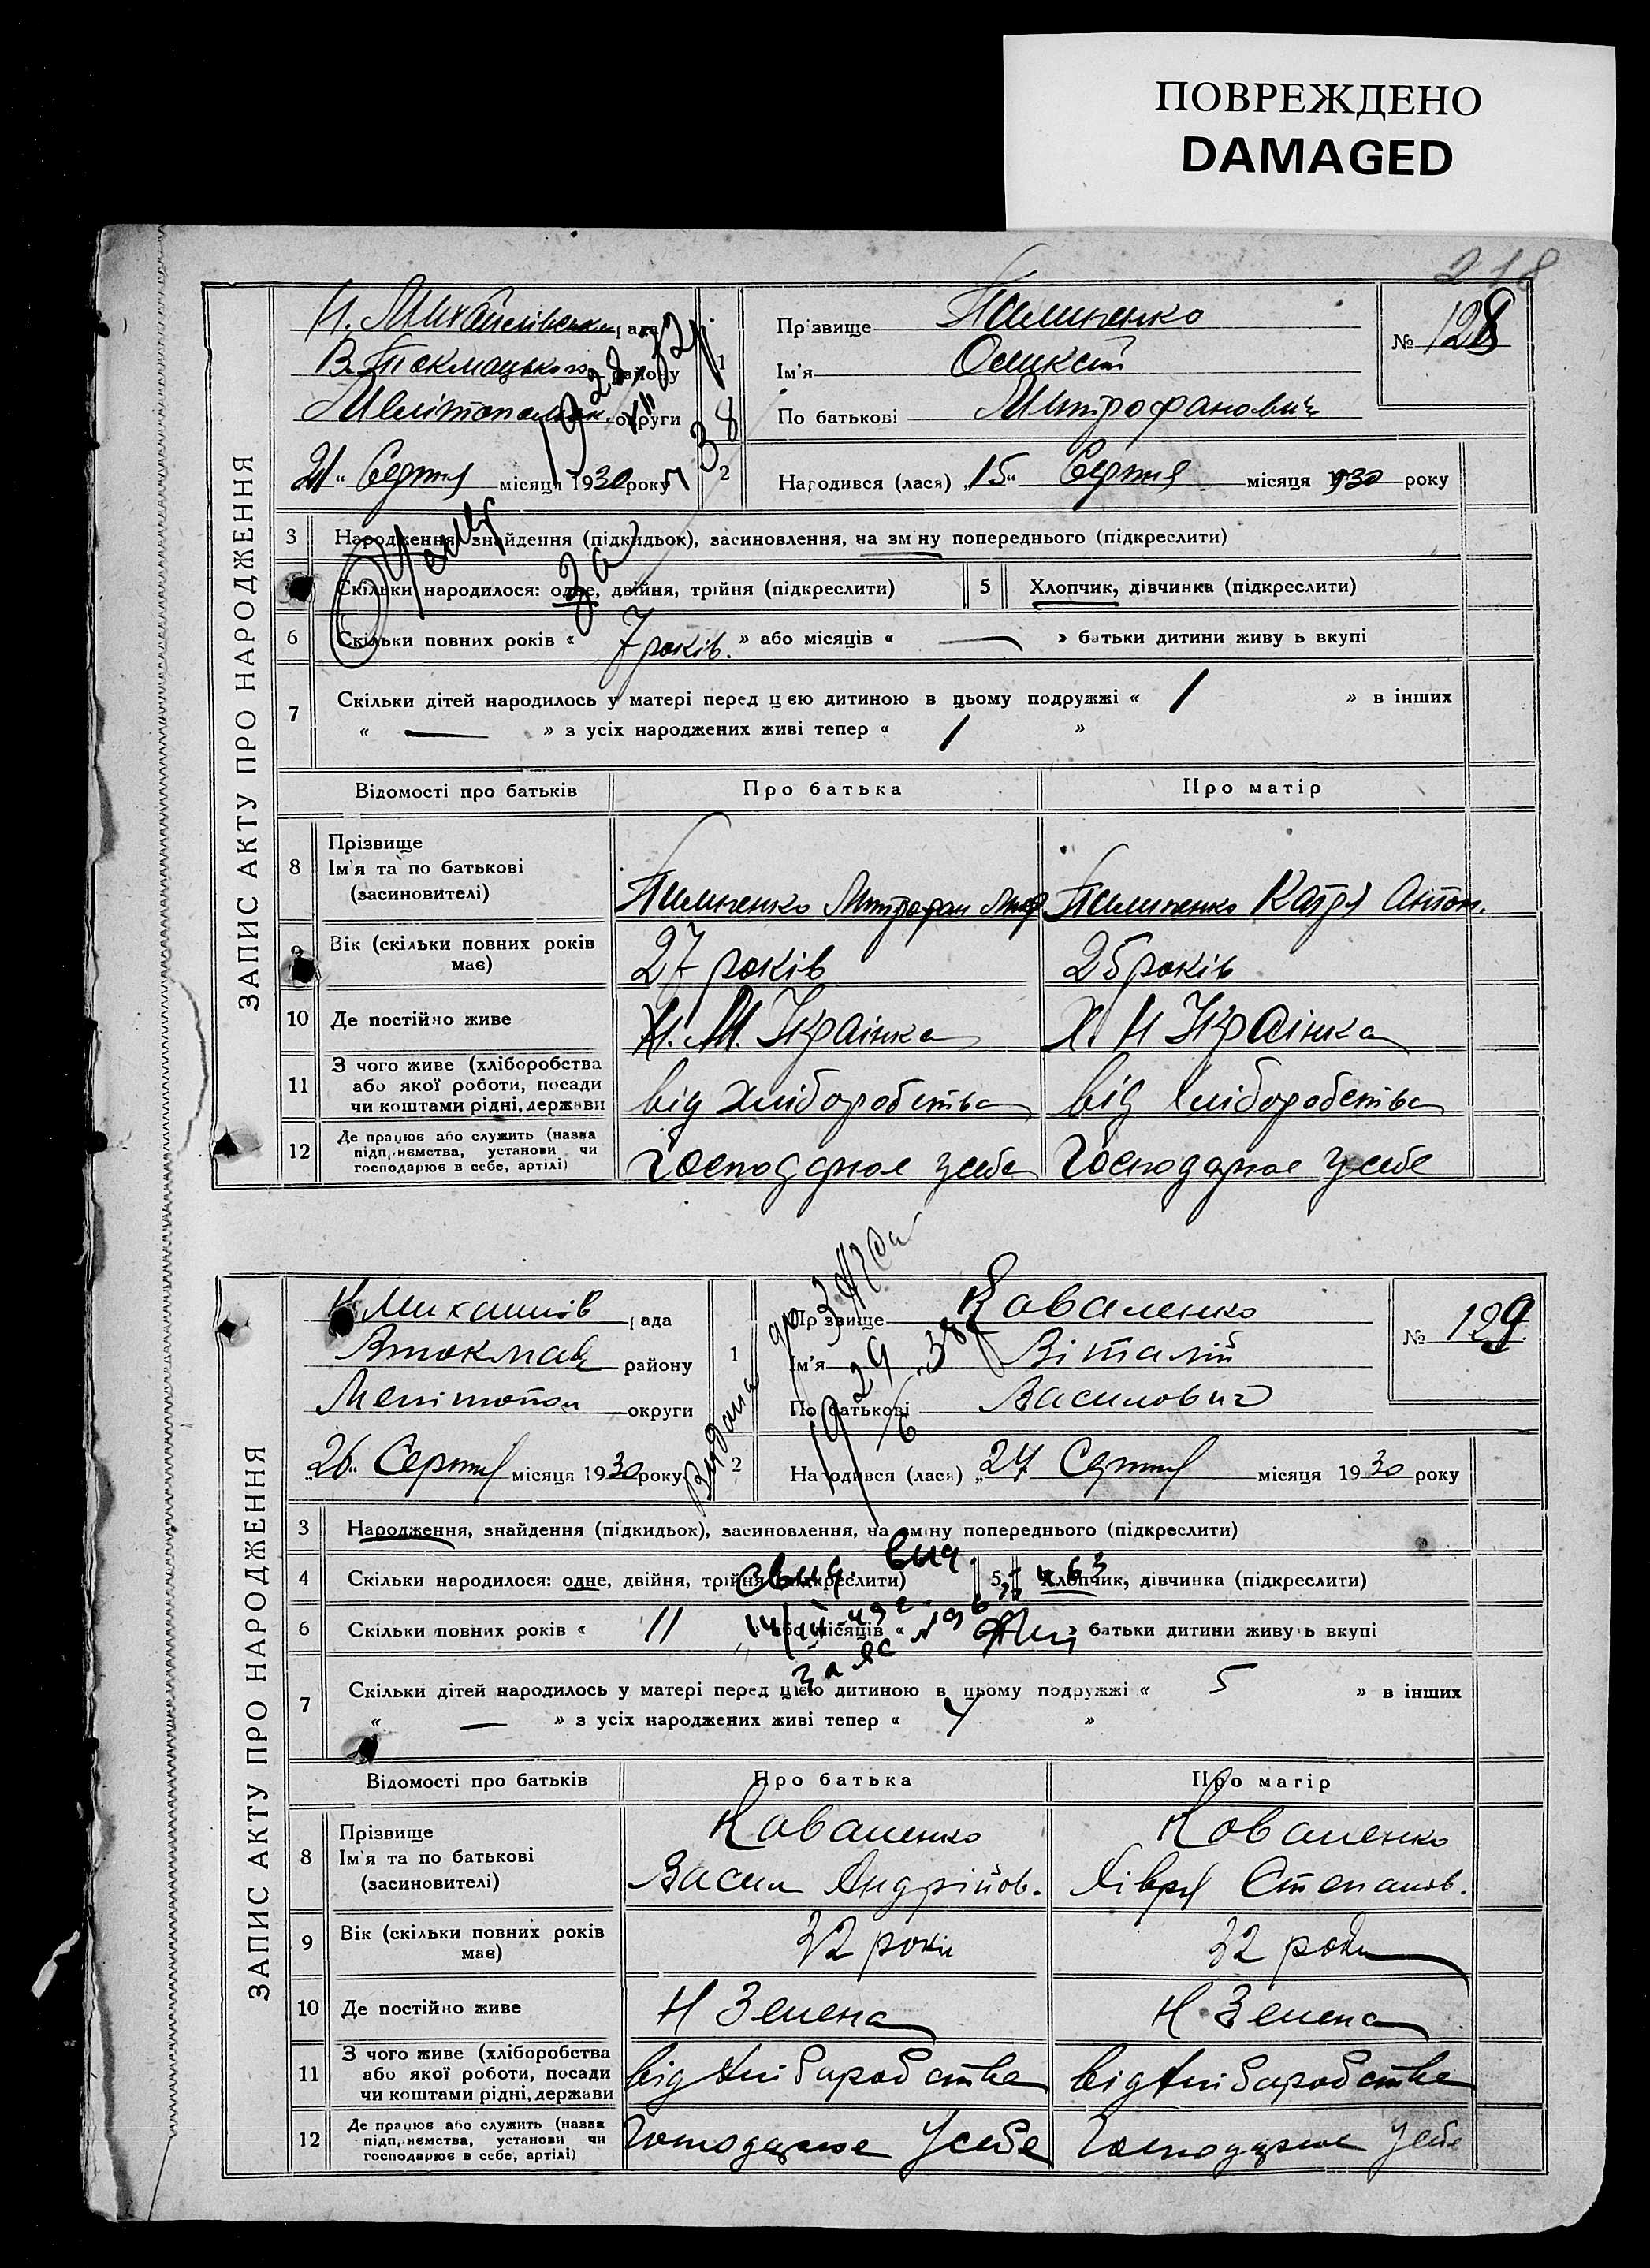 ПОВРЕЖДЕНО
DAMAGED
218
ЗАПИС АКТУ ПРО НАРОДЖЕННЯ
Н. Михайлівська рада
В. Токмацького району
округи
1
Прізвище
№ 128
Ім'я
По батькові Митрофанович
21 Серпня місяця 1930 року
2
Народився (лася) „15" Серпня місяця 1930 року
3 Народження, знайдення (підкидьок), засиновлення, на зміну попереднього (підкреслити)
Скільки народилося: одне, двійня, трійня (підкреслити)
5 Хлопчик, дівчинка (підкреслити)
6 Скільки повних років « 7 років. » або місяців « — » батьки дитини живуть вкупі
7 Скільки дітей народилось у матері перед цією дитиною в цьому подружжі « 1 » в інших
« — » з усіх народжених живі тепер « 1 »
Відомості про батьків Про батька Про матір
8 Прізвище
Ім'я та по батькові
(засиновителі)
Митрофан Катря Антон.
9 Вік (скільки повних років має) 27 років 25 років
10 Де постійно живе Н. М. Українка Х. Н Українка
11 З чого живе (хліборобства
або якої роботи, посади
чи коштами рідні, держави
від хліборобства від хліборобства
12 Де працює або служить (назва
підприємства, установи чи
господарює в себе, артілі)
Господарює у себе Господарює у себе
ЗАПИС АКТУ ПРО НАРОДЖЕННЯ
Н Михайлів рада
Втокмац району
Мелітопол округи
1
Прізвище Коваленко
№ 129
Ім'я Віталій
По батькові Василович
„26" Серпня місяця 1930 року
2
Народився (лася) „24 Серпня місяця 1930 року
3 Народження, знайдення (підкидьок), засиновлення, на зміну попереднього (підкреслити)
4 Скільки народилося: одне, двійня, трійня (підкреслити)
5 Хлопчик, дівчинка (підкреслити)
6 Скільки повних років « 11 » або місяців « » батьки дитини живуть вкупі
7 Скільки дітей народилось у матері перед цією дитиною в цьому подружжі « 5 » в інших
« — » з усіх народжених живі тепер « 4 »
Відомості про батьків Про батька Про матір
8 Прізвище
Ім'я та по батькові
(засиновителі)
Коваленко Коваленко
Васил Андрійов. Хівря Степанов.
9 Вік (скільки повних років має) 32 роки 32 роки
10 Де постійно живе Н Зелена Н. Зелена
11 З чого живе (хліборобства
або якої роботи, посади
чи коштами рідні, держави
від хліборобства від хліборобства
12 Де працює або служить (назва
підприємства, установи чи
господарює в себе, артілі)
Господарює у себе Господарює у себе